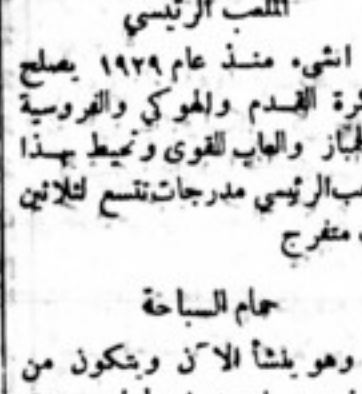 الملعب الرئيسي
انشىء منــذ عام ١٩٢٩ يصلح
القــدم والهوكي والفروسية
والعاب القوى ونحيط بهــذا
الرئيسي مدرجات تتسع لثلاثين
متفرج
حمام الســباحة
وهو ينشأ الآن ويتكون من